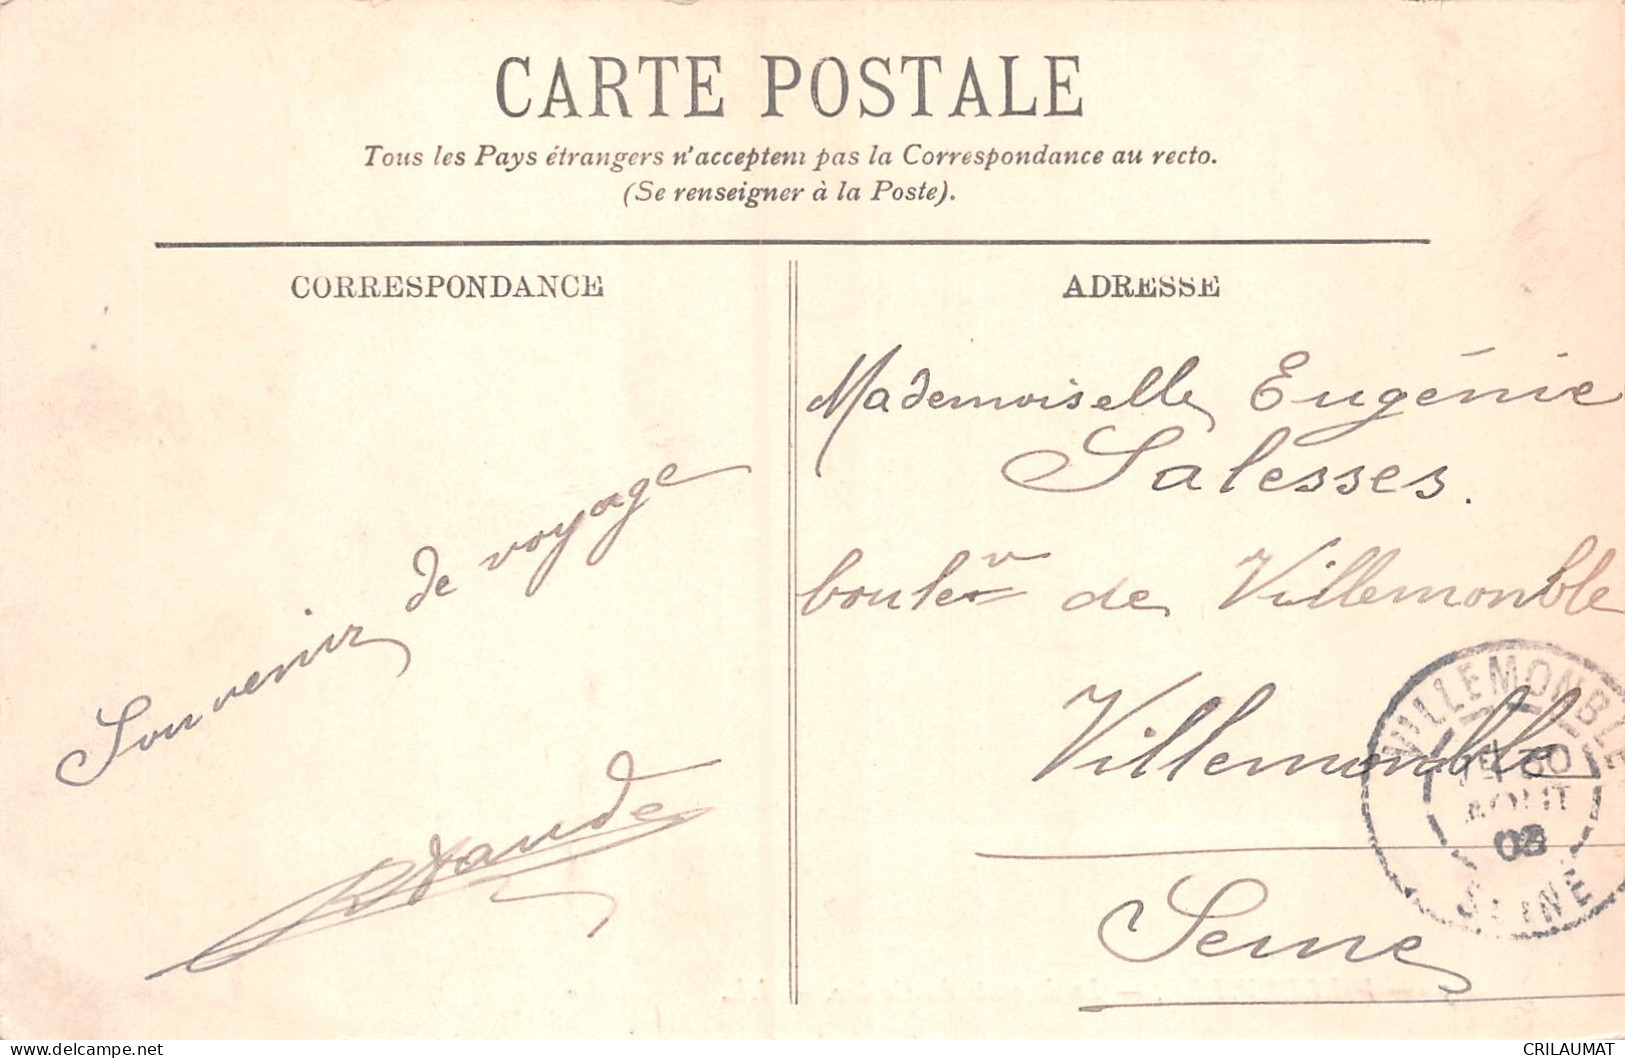 CARTE POSTALE
Tous les Pays étrangers n'acceptent pas la Correspondance au recto.
(Se renseigner à la Poste).
CORRESPONDANCE
Souvenir de voyage
ADRESSE
Mademoiselle Eugénie
Salesses.
boulev de Villemonble
Villemonble
Seine
VILLEMONBLE
30
AOUT
08
SEINE
www.delcampe.net
CRILAUMAT